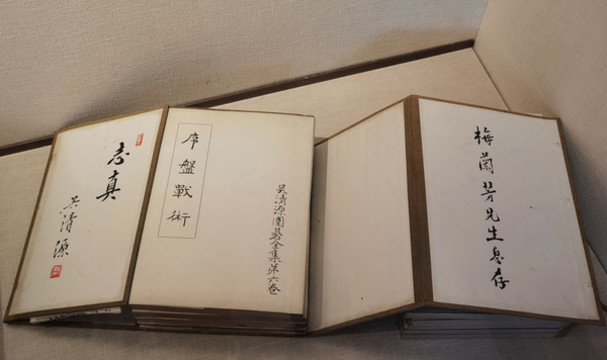 志真
吴清源
吳清源圍碁全集第六卷
序盤戰術
梅蘭芳先生惠存